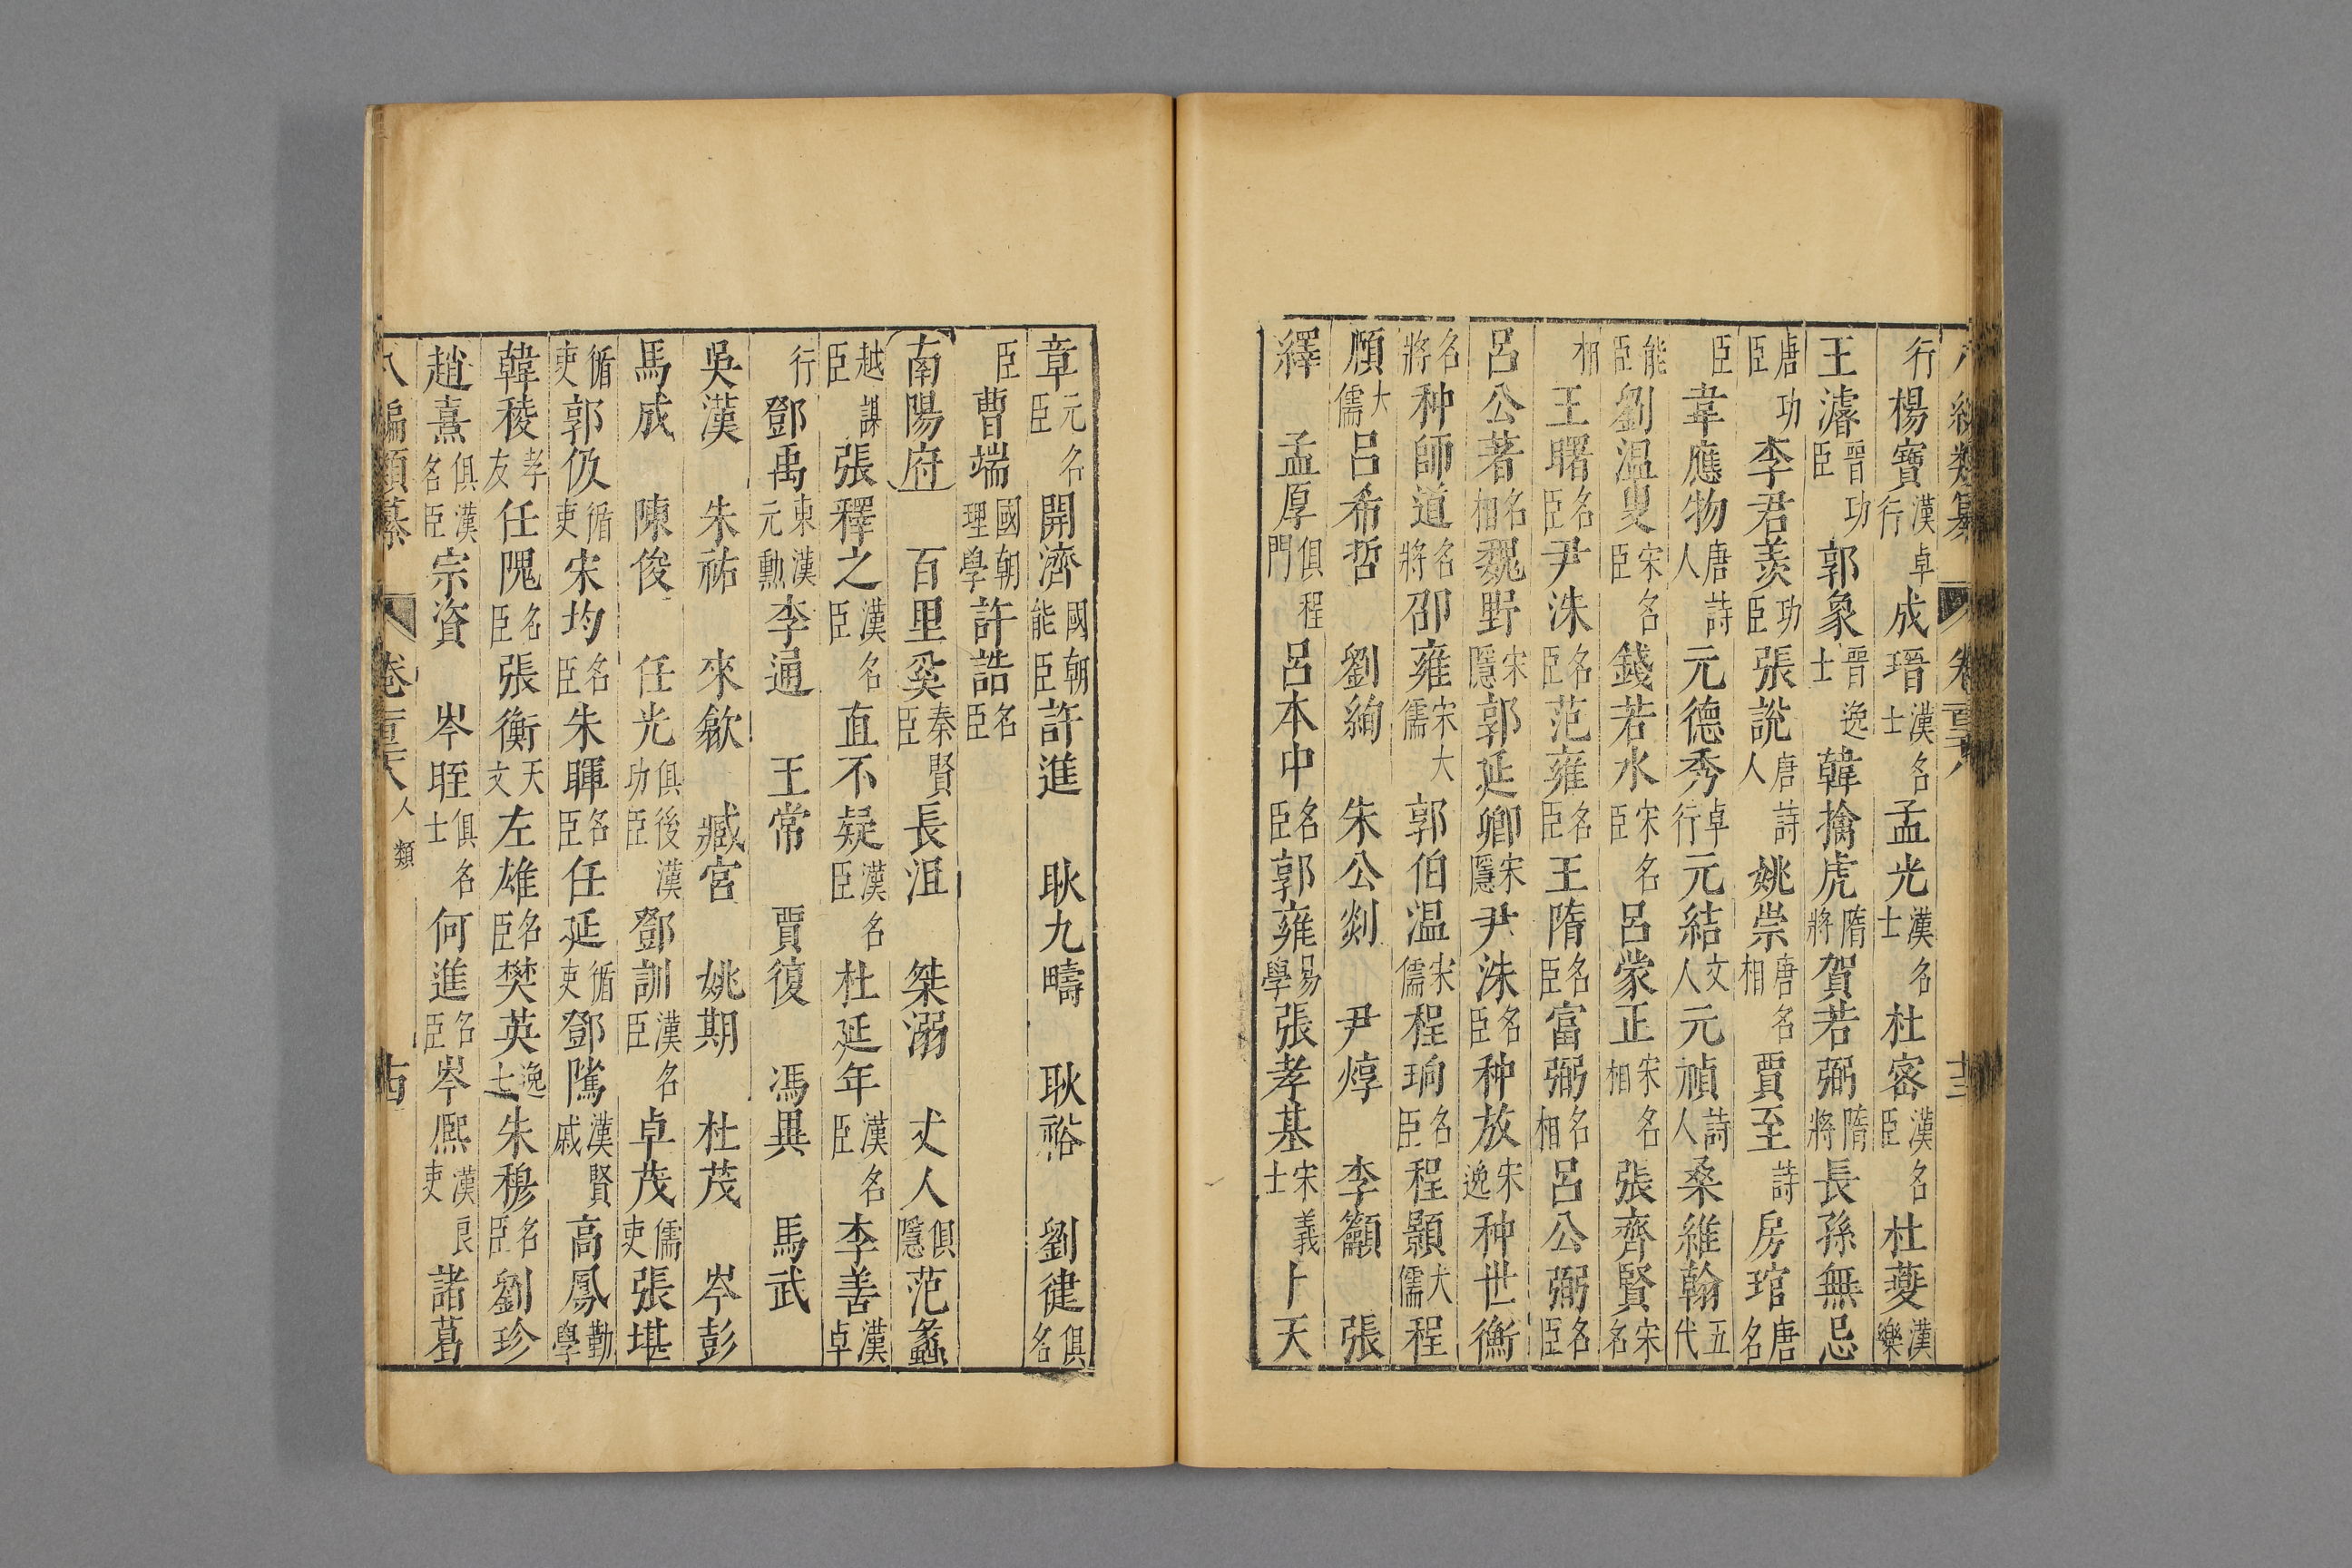 八編類纂 卷百六八 十三
行楊寶漢卓行成瑨漢名士孟光漢名士杜密漢名臣杜夔漢樂
王濬晉功臣郭象晉逸士韓擒虎隋將賀若弼隋將長孫無忌
唐功臣李君羨功臣張說唐詩人姚崇唐名相賈至詩房琯唐名
臣韋應物唐詩人元德秀卓行元結文人元禎詩人桑維翰五代
能臣劉温叟宋名臣錢若水宋名臣呂蒙正宋名相張齊賢宋名
相王曙名臣尹洙名臣范雍名臣王隋名臣富弼名相呂公弼名臣
呂公著名相魏野宋隱郭延卿宋隱尹洙名臣种放宋逸种世衡
名將种師道名將邵雍宋大儒郭伯温宋儒程珦名臣程顥大儒程
頤大儒呂希哲 劉絢 朱公剡 尹焞 李籲 張
繹 孟厚俱程門呂本中名臣郭雍易學張孝基宋義士卜天
章元名臣開濟國朝能臣許進 耿九疇 耿裕 劉健俱名
臣曹端國朝理學許誥名臣
南陽府 百里奚秦賢臣長沮 桀溺 丈人俱隱范蠡
越謀臣張釋之漢名臣直不疑漢名臣杜延年漢名臣李善漢卓
行鄧禹東漢元勳李通 王常 賈復 馮異 馬武
吳漢 朱祐 來歙 臧宮 姚期 杜茂 岑彭
馬成 陳俊 任光俱後漢功臣鄧訓漢名臣卓茂儒吏張堪
循吏郭伋循吏宋均名臣朱暉名臣任延循吏鄧騭漢賢戚高鳳勤學
韓稜孝友任隗名臣張衡天文左雄名臣樊英逸士朱穆名臣劉珍
趙熹俱漢名臣宗資 岑晊俱名士何進名臣岑熙漢良吏諸葛
八編類纂 卷百六八 人類 十四